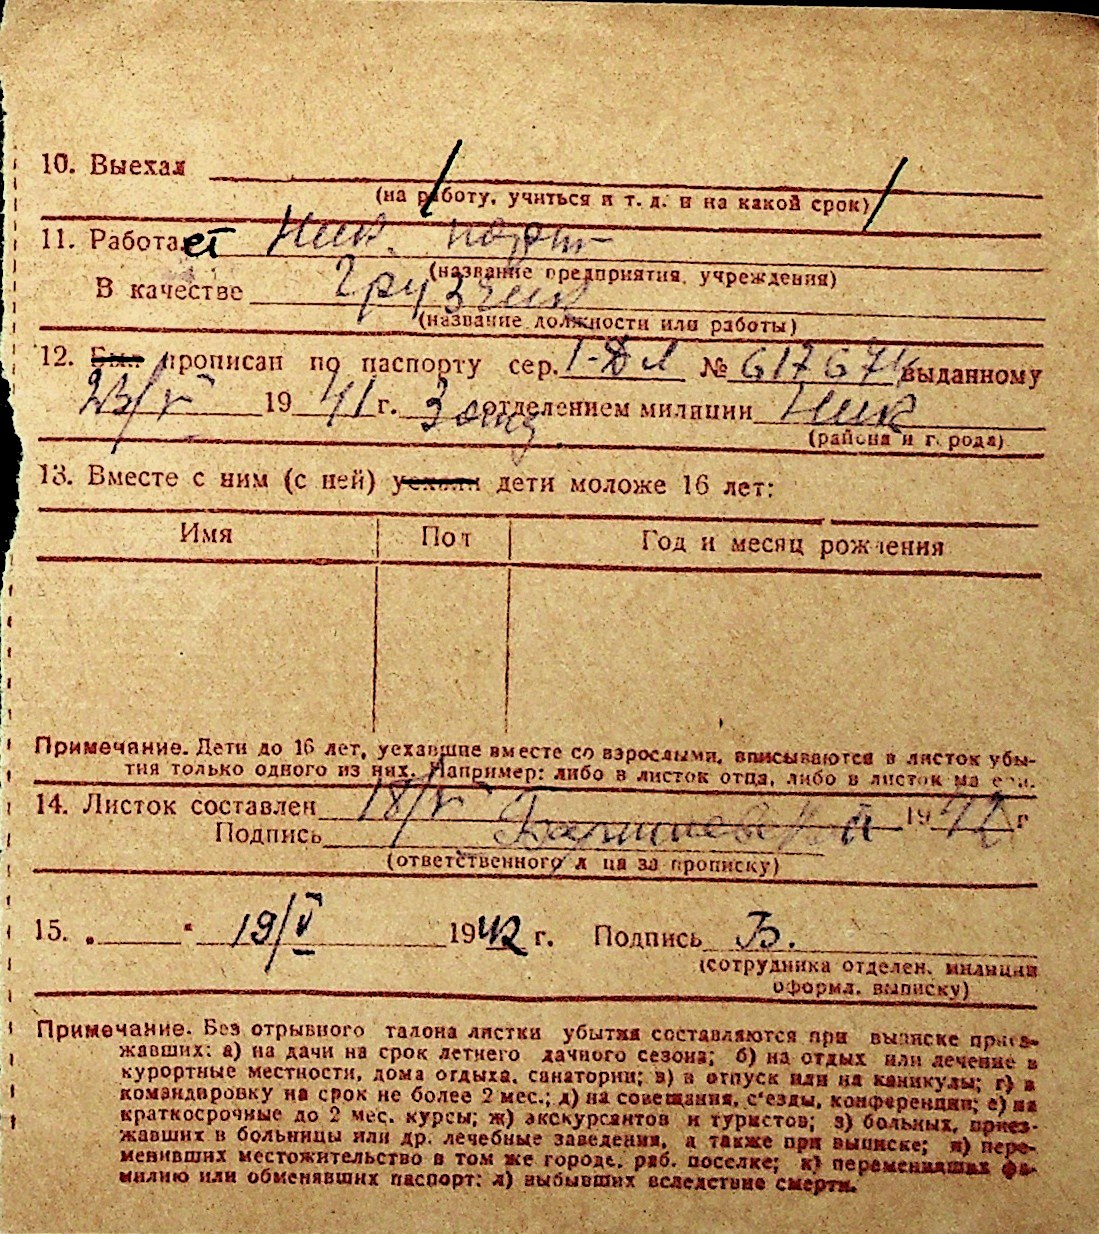 10. Выехал
(на работу, учиться и т. д. и на какой срок)
11. Работает Ник. порт
(название предприятия, учреждения)
В качестве Грузчик
(название должности или работы)
12. Был прописан по паспорту сер. I-ДЛ № 617674 выданному
23/V 1941 г. 3 отд отделением милиции Ник
(района и города)
13. Вместе с ним (с ней) уехали дети моложе 16 лет:
Имя Пол Год и месяц рождения
Примечание. Дети до 16 лет, уехавшие вместе со взрослыми, вписываются в листок убы-
тия только одного из них. Например: либо в листок отца, либо в листок матери.
14. Листок составлен 18/V 1942 г
Подпись
(ответственного лица за прописку)
15. „ " 19/V 1942 г. Подпись Б.
(сотрудника отделен. милиции
оформл. выписку)
Примечание. Без отрывного талона листки убытия составляются при выписке приез-
жавших: а) на дачи на срок летнего дачного сезона; б) на отдых или лечение в
курортные местности, дома отдыха, санатории; в) в отпуск или на каникулы; г) в
командировку на срок не более 2 мес.; д) на совещания, с'езды, конференции; е) на
краткосрочные до 2 мес. курсы; ж) экскурсантов и туристов; з) больных, приез-
жавших в больницы или др. лечебные заведения, а также при выписке; и) пере-
менивших местожительство в том же городе, раб. поселке; к) переменивших фа-
милию или обменявших паспорт; л) выбывших вследствие смерти.